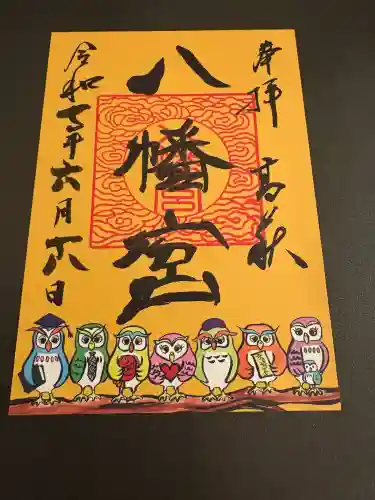 奉拝 高萩
八幡宮
令和七年六月六日